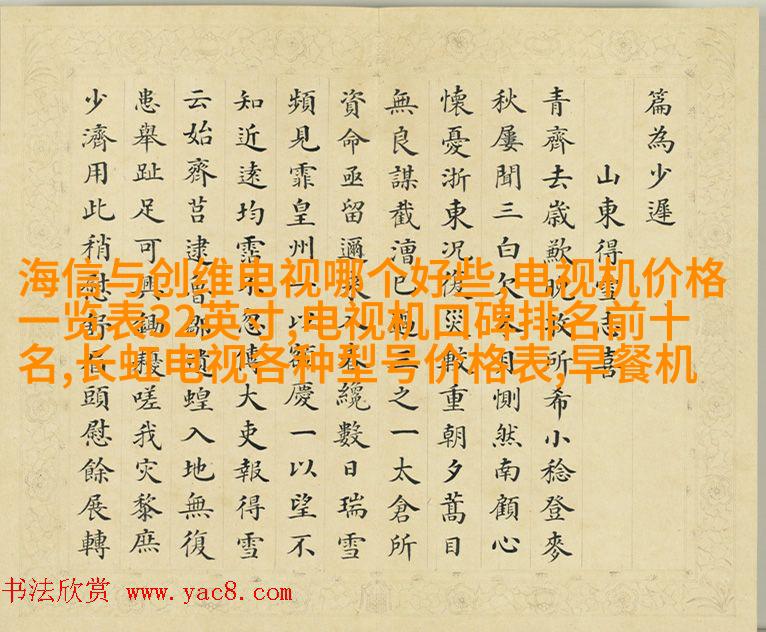 篇為少遲
山東得雪志喜
青齊去歲歉晚收所希小稔登麥
秋屢聞三白欠冬用惻然南顧心
懷憂浙東況復災較重朝夕蒿目
無良謀截漕已過三之一太倉所
資命亟留邇來入春纔數日瑞雪
頻見霏皇州一以額慶一以望不
知近遠均霑忽傳大吏報得雪
云始齊莒逮魯鄒遺蝗入地無復
患舉趾足可興鋤耰嗟我災黎庶
少濟用此稍慰舒頭慰餘展轉
海信与创维电视哪个好些,电视机价格
一览表32英寸,电视机口碑排名前十
名,长虹电视各种型号价格表,早餐机
书法欣赏 www.yac8.com